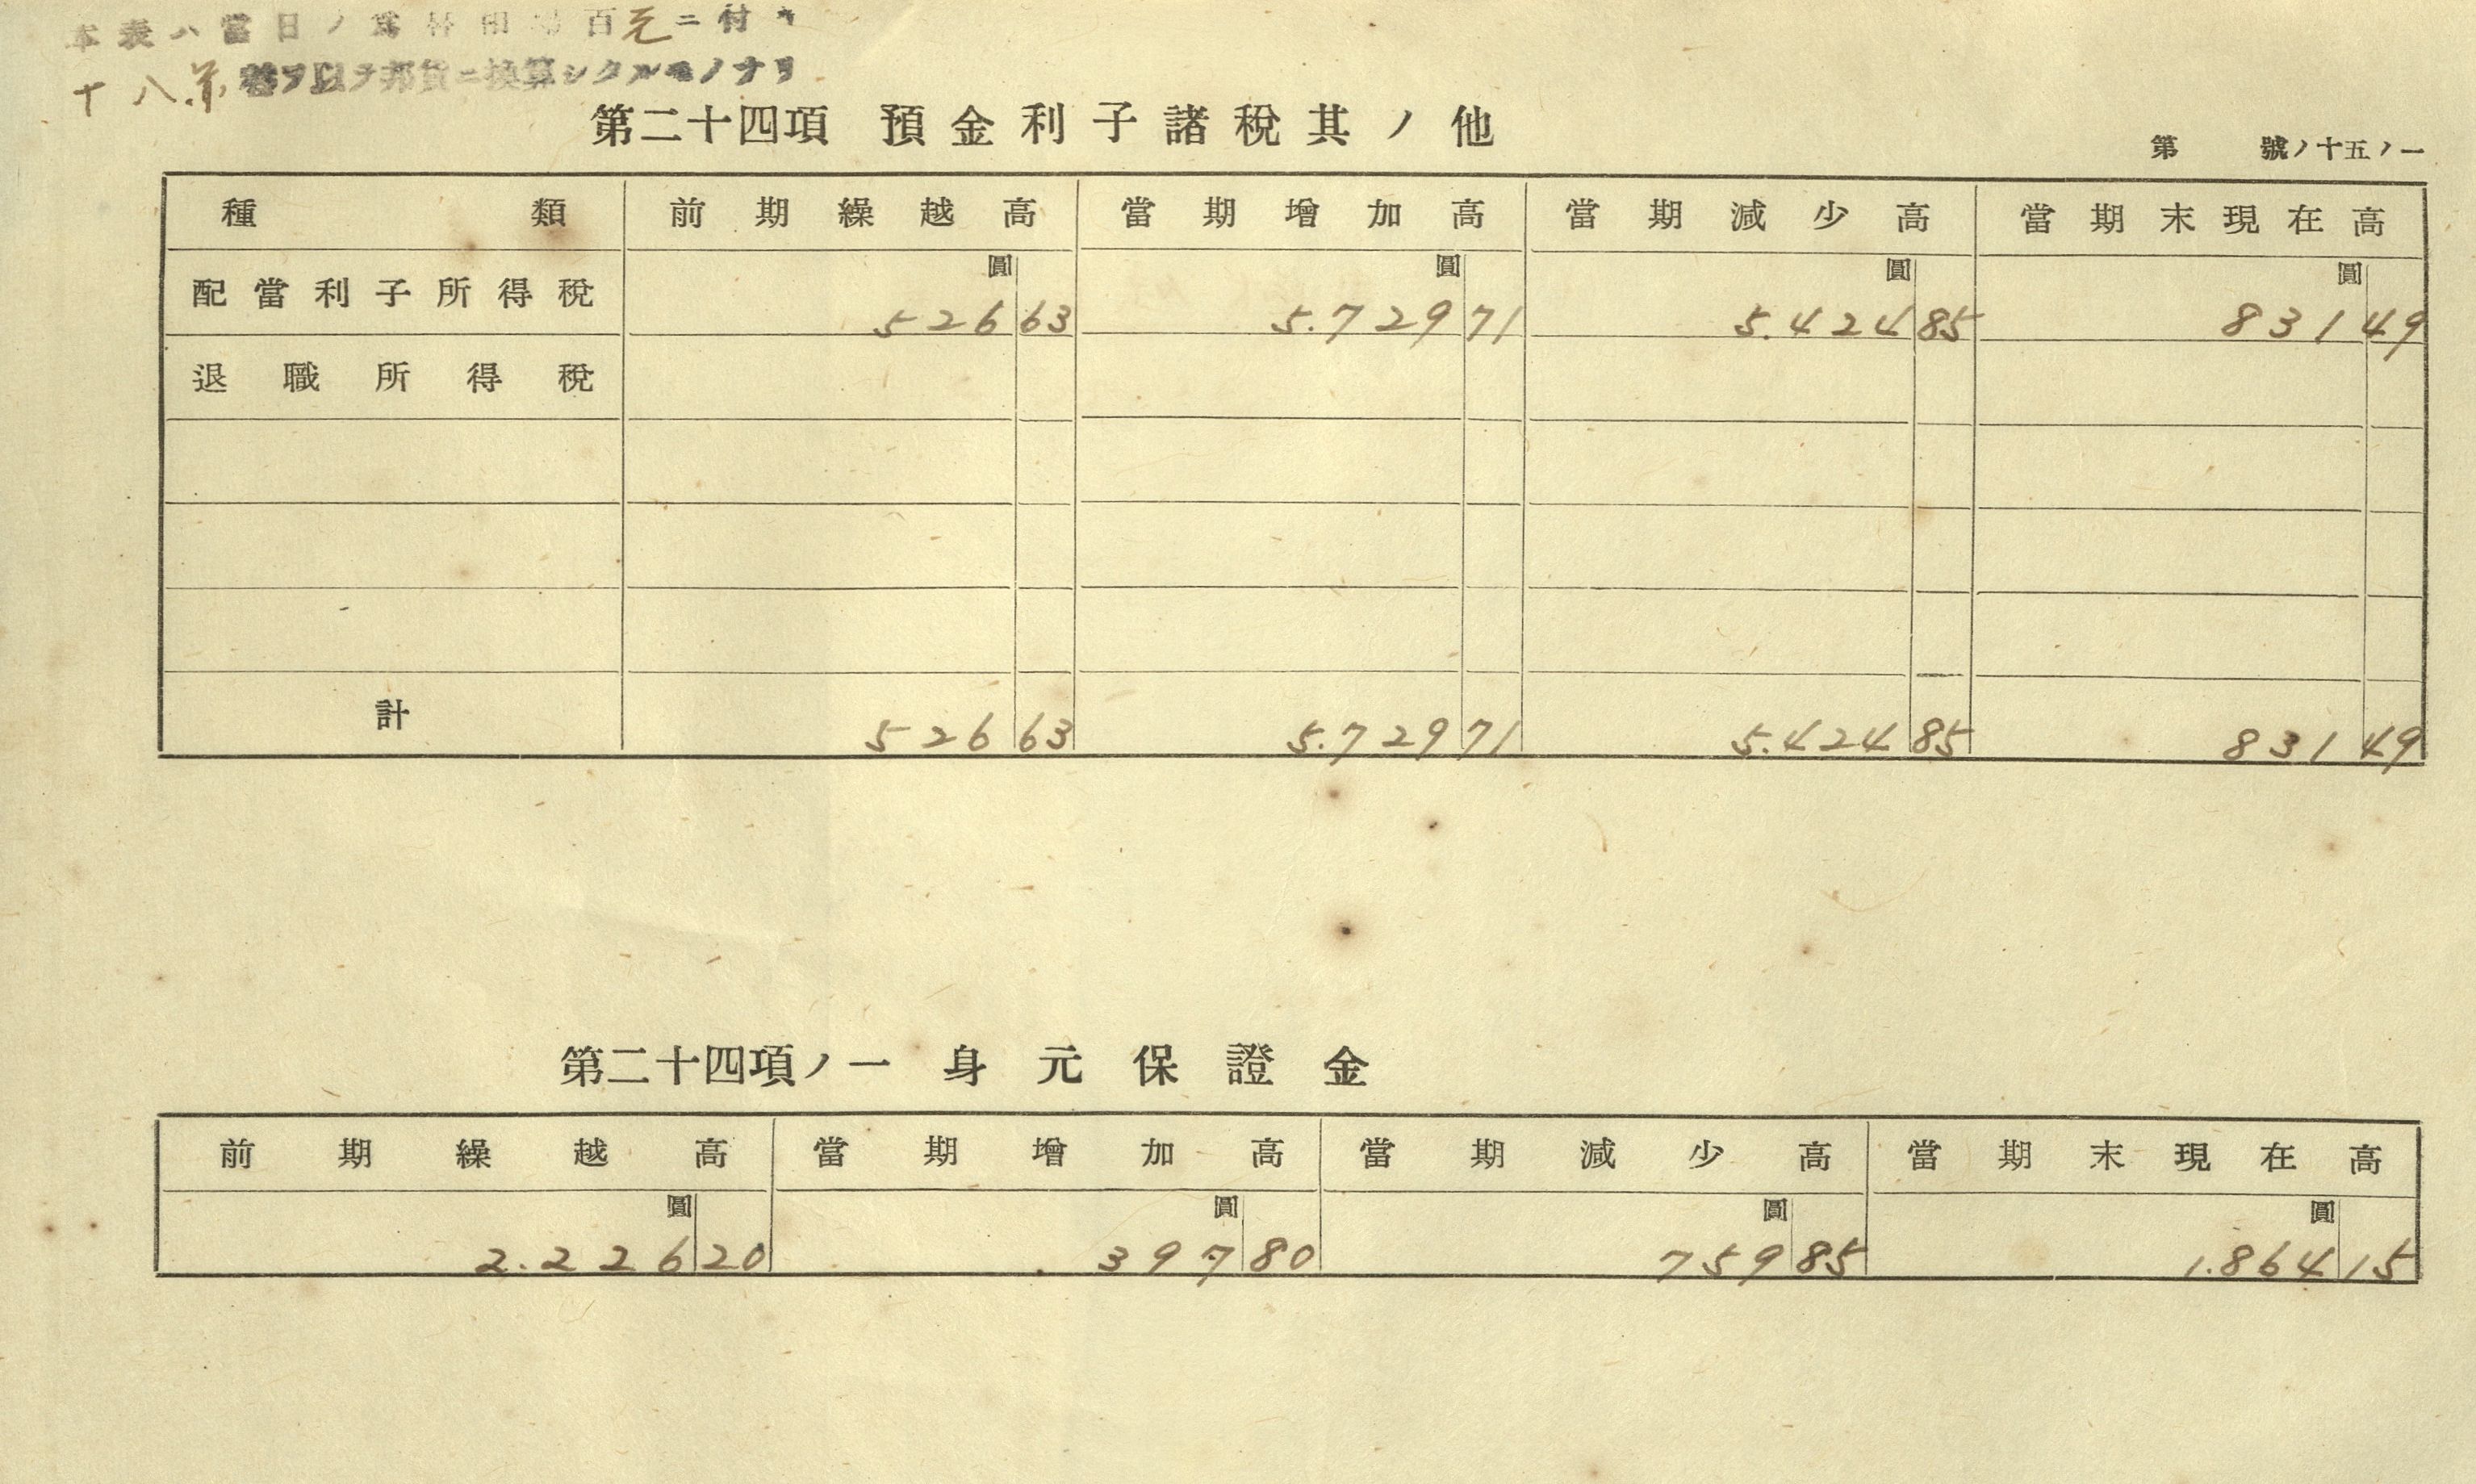 本表ハ當日ノ爲替相場百元ニ付キ
十八弗替ヲ以テ邦貨ニ換算シタルモノナリ
第二十四項 預金利子諸稅其ノ他
第 號ノ十五ノ一
種類 前期繰越高 當期增加高 當期減少高 當期末現在高
圓 圓 圓 圓
配當利子所得稅 526 63 5.729 71 5.424 85 831 49
退職所得稅
計 526 63 5.729 71 5.424 85 831 49
第二十四項ノ一 身元保證金
前期繰越高 當期增加高 當期減少高 當期末現在高
圓 圓 圓 圓
2.226 20 397 80 759 85 1.864 15